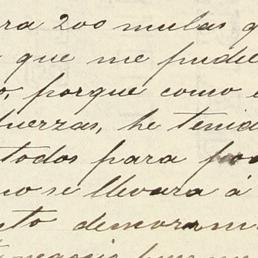 ra 200 mulas q
que me pudie
o, porque como e
fuerzas, he tenid
todos para po
no se llevara á
to demoram